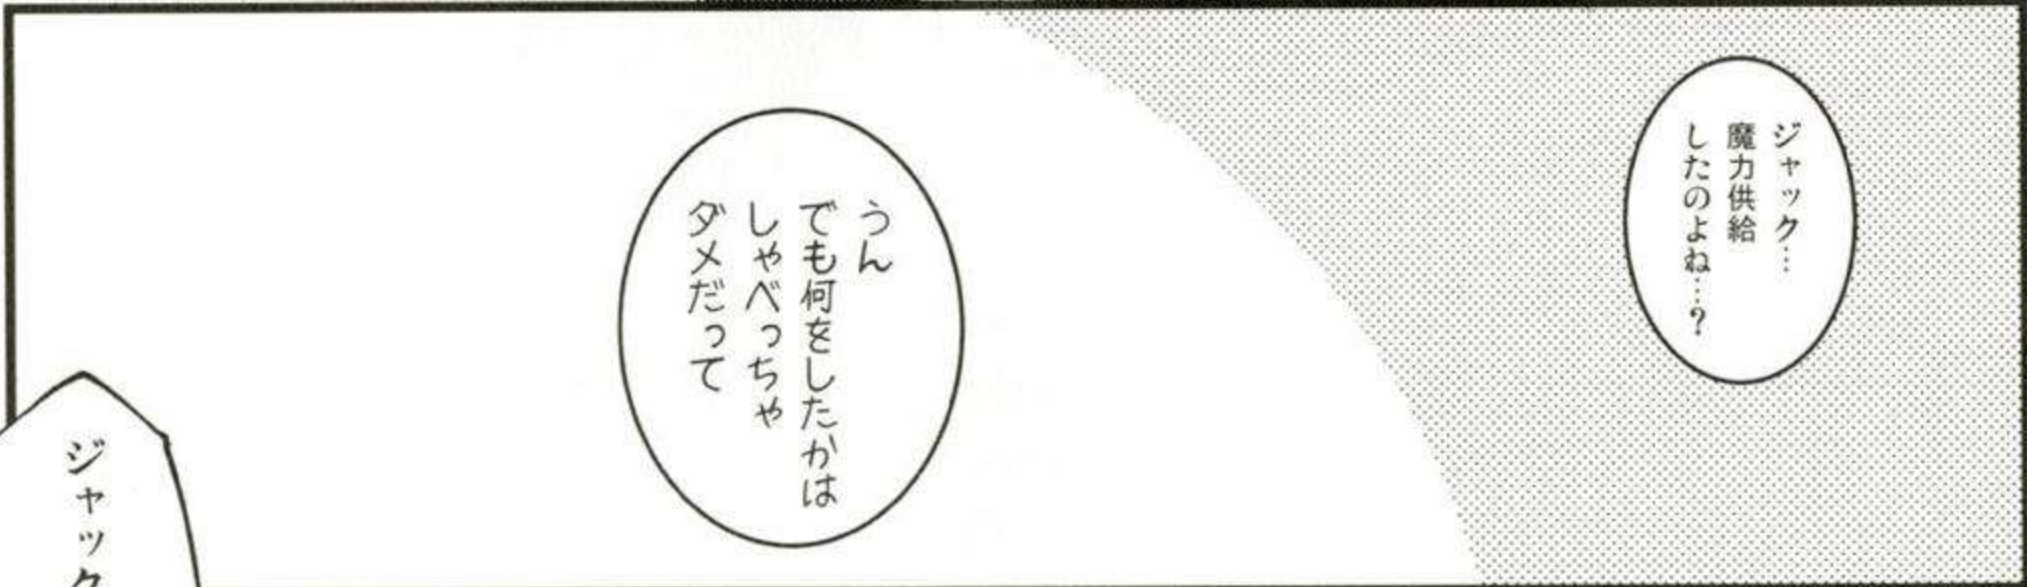 ジャック…
魔力供給
したのよね…？
うん
でも何をしたかは
しゃべっちゃ
ダメだって
ジャック